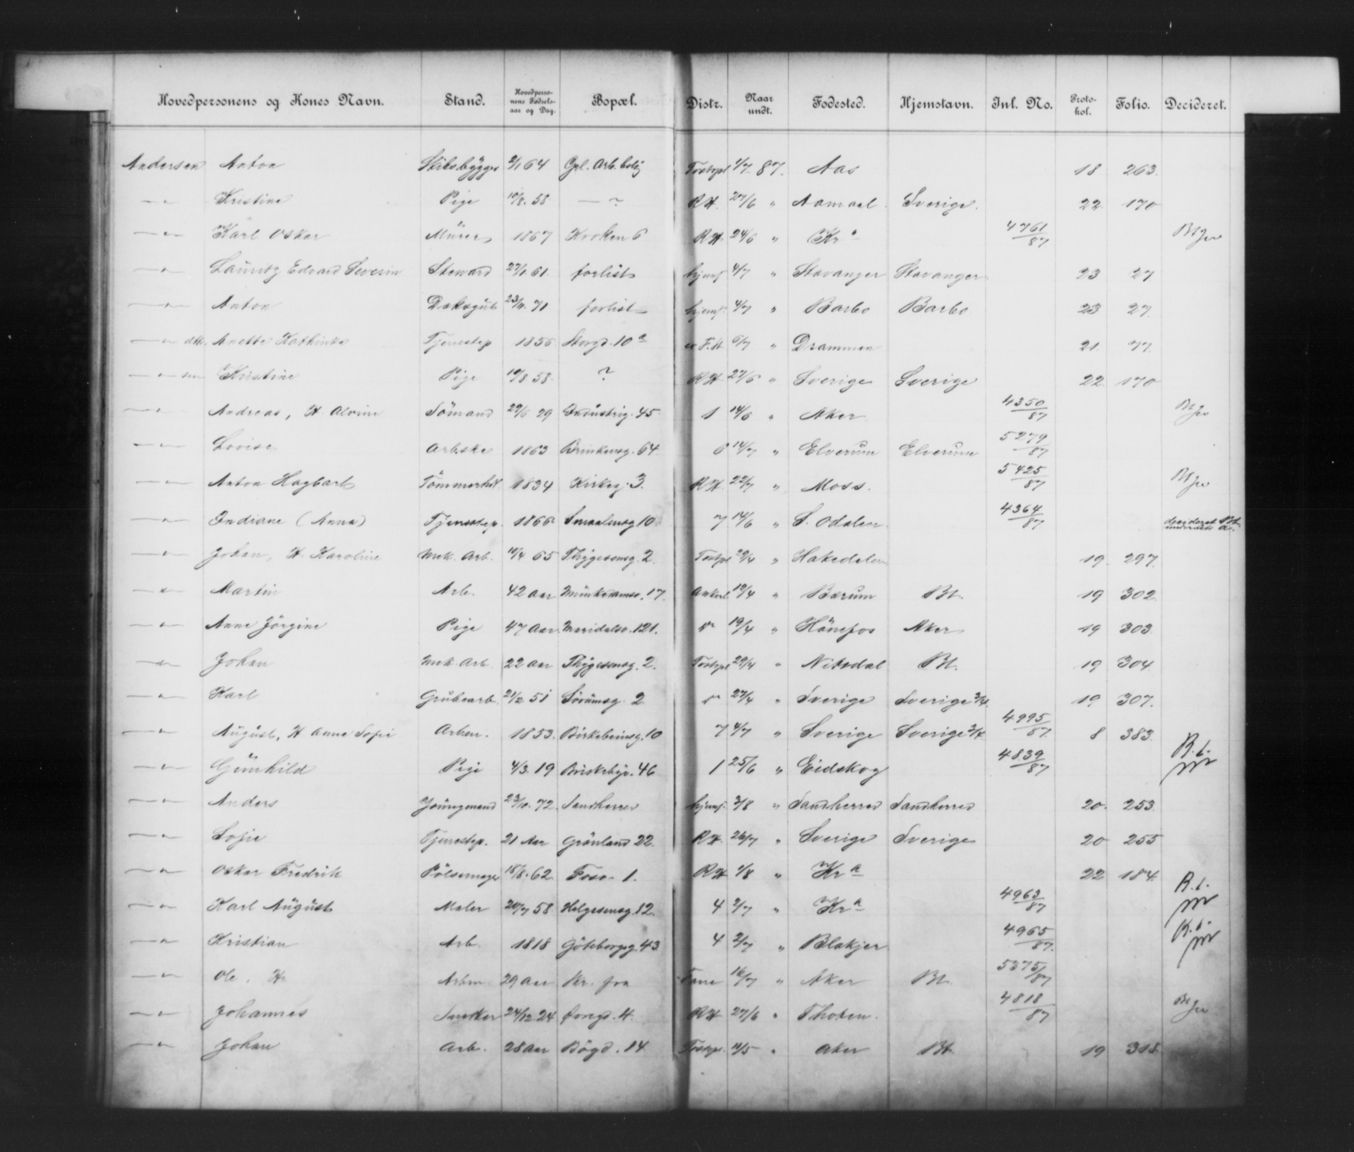 Hovedpersonens og Kones Navn. Stand. Hovedperso- nens Fødsels- aar og Dag. Bopæl. Distr. Naar undt. Fødested. Hjemstavn. Inl. No. Proto- kol. Folio. Decideret.
Andersen Anton Skibsbygger 64 Gpl. Arb. bolig 1/7 87. Aas 18 263.
—"— Kristine Pige 58 — ? R.H. 27/6 " Aamaal. Sverige. 22. 170
—"— Karl Oskar Murer 1867 Kroken 6 R.H. 24/6 " Kr a 4761/87
—"— Lauritz Edvard Severin Steward 27/1 61. forlist hjemf. 4/7 " Stavanger Stavanger 23 27
—"— Anton Dæksgut 71 forlist hjemf. 4/7 " Barbo Barbo 23 27.
—"— Anette Kathinka Tjenestep 1856 Storgd. 10 a " Drammen 21 77.
—"— Kristine Pige 19/8 58. ? R.H. 27/6 " Sverige Sverige 22. 170
—"— Andreas, H. Alvine Sömand 29 Industrig. 45 1 14/6 " Aker 4350/87
—"— Lovise Arbske 1863 Brinkensg. 64 14/7 " Elverum Elverum 5279/87
—"— Anton Hagbart Tömmerhdl 1834 Kirkeg. 3. R.H. 22/7 " Moss. 5425/87
—"— Indiane (Anna) Tjenestep. 1866 Smaalensg 10 7 14/6 " S. Odalen 4364/87 decideret
—"— Johan, H. Karoline Mek. Arb. 65 Thygesensg. 2. 29/4 " Hakedalen 19. 297.
—"— Martin Arb. 42 Aar Munkedamsv. 17. 19/4 " Bærum Bt. 19 302
—"— Anne Jörgine Pige 47 Aar. Maridalsv. 121. 19/4 " Hönefos Aker 19 303
—"— Johan Mek. Arb. 22 Aar Thygesensg. 2. 29/4 " Nitedal Bt. 19 304
—"— Karl Grubearb. 51 Sörumsg. 2 27/4 " Sverige Sverige 19 307.
—"— August, H. Anna Sofie Arbm. 1853. Birkebeinsg. 10 7 4/7 " Sverige Sverige 4995/87 8 383.
—"— Gunhild Pige 4/3. 19 Briskebyv. 46 1 25/6 " Eidskog 4839/87 B.t.
—"— Anders Youngmand 23/10. 72. Sandherred hjemf. 3/8 " Sandherred Sandherred 20. 253
—"— Sofie Tjenestep. 21 Aar Grönland 22 R.H. 26/7 " Sverige Sverige 20 255
—"— Oskar Fredrik Pölsemager 62 Fossv. 1. R.H. 1/8 " Kr a 22 184
—"— Karl August Maler 20/7 58 Helgesensg. 12. 4 2/7 " Kr a 4963/87 B.t.
—"— Kristian Arb. 1818 Göteborgg. 43 4 2/7 " Blakjer 4965/87. B.t.
—"— Ole. H. Arbm 29 Aar Kr. fra 16/7 " Aker Bt. 5375/87
—"— Johannes Snekker 24/12 24 4. R.H. 27/6 " Thoten. 4818/87
—"— Johan Arb. 28 Aar Bögd. 14 " Aker Bt. 19 318.